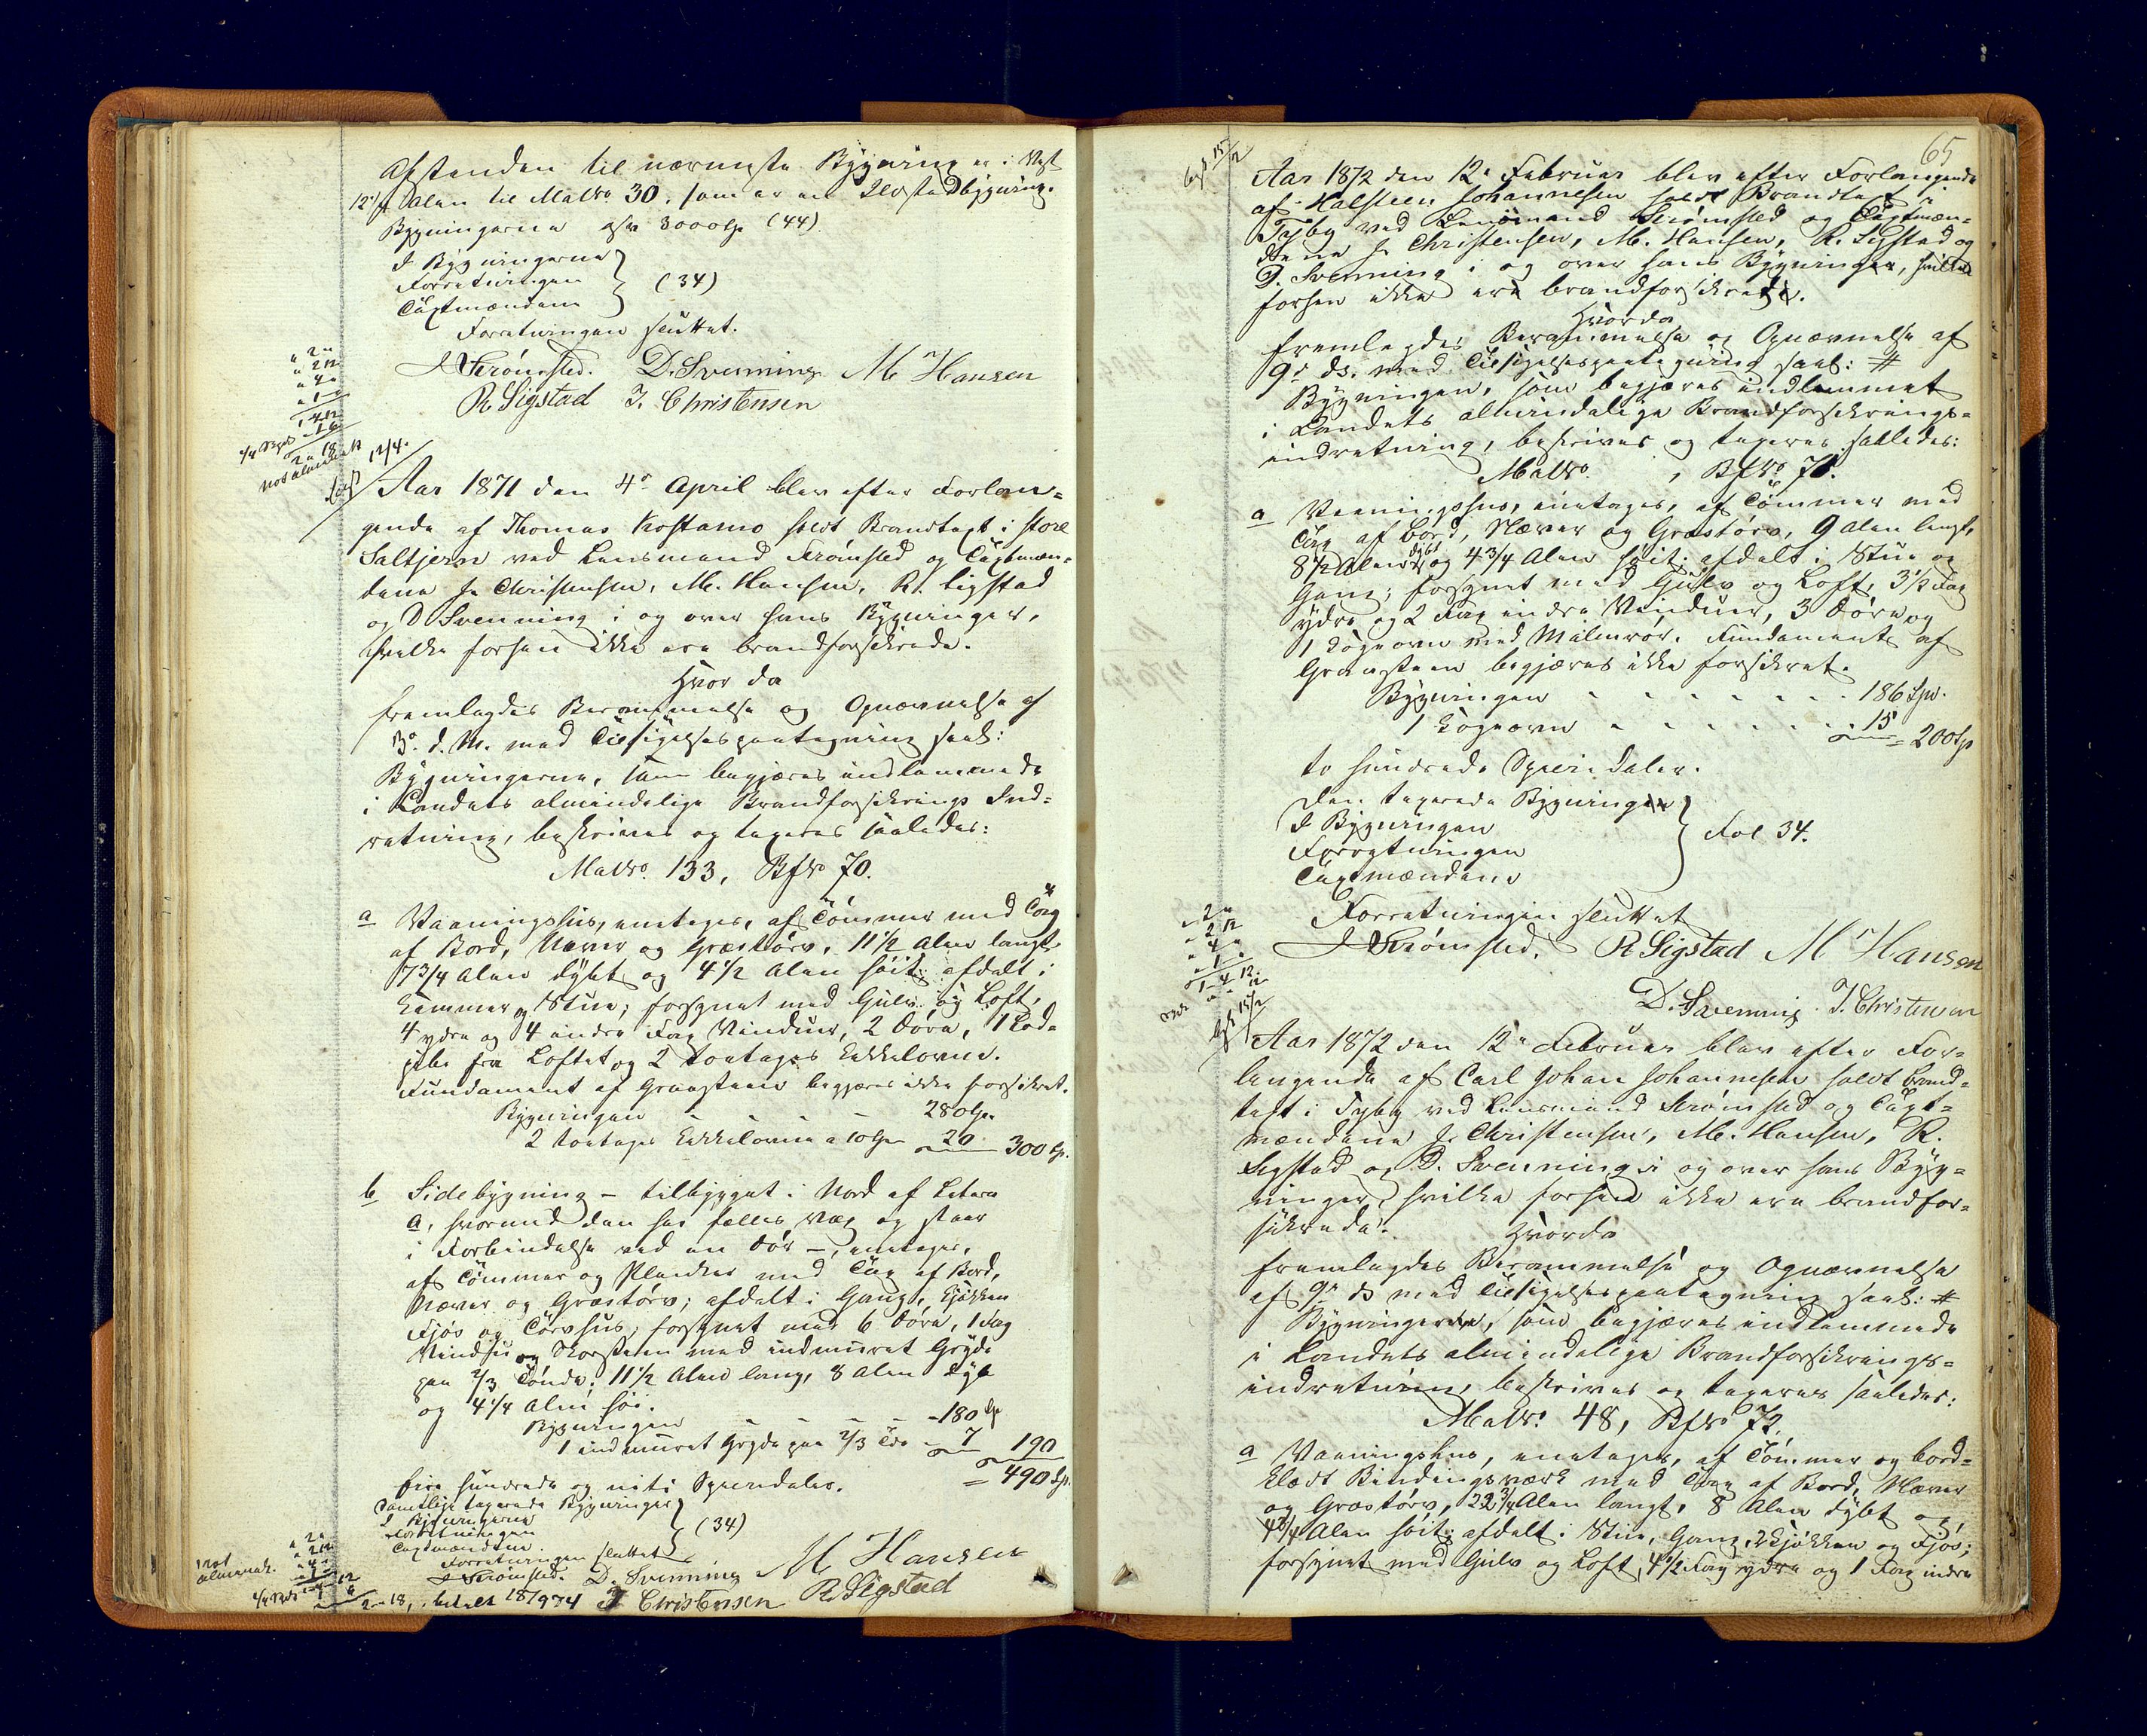 Afstanden til nærmeste Bygning er i Vest
12 1/4 Alen til Matro 30, som er en Ildstedbygning.
Bygningerne æstr 3000 Sp (44).
I Bygningerne
Forretningen
Taxtmændene
(34)
Forretningen sluttet.
Strømsted. D. Svenning M Hansen
R Sigstad J. Christensen
12/4.
Aar 1871 den 4de April blev efter Forlan=
gende af Thomas Kostamo holdt Brandtaxt i store
Saltjern ved Lensmand Strømsted og Taxtmæn=
dene J. Christensen, M. Hansen, R. Sigstad
og D Svenning i og over hans Bygninger,
hvilke forhen ikke ere brandforsikrede.
Hvor da
fremlagdes Berammelse og Opnævnelse af
3d. d. M. med Tilsigelsespaategning saal:
Bygningerne, som begjæres indlemmede
i Landets almindelige Brandforsikrings Ind=
retning, beskrives og taxeres saaledes:
Matro. 133, Bfro 70.
a Vaaningshus, eenetages, af Tømmer med Tag
af Bord, Næver og Græstørv, 11 1/2 Alen langt,
7 3/4 Alen dybt og 4 1/2 Alen høit; afdelt i
Kammer og Stue; forsynet med Gulv og Loft,
4 ydre og 4 indre Fag Vinduer, 2 Døre, 1 Lad=
pibe fra Loftet og 2 toetages Kakkelovne.
Fundament af Graasteen begjæres ikke forsikret.
Bygningen - - - - 280 Sp.
2 toetages Kakkelovne a 10 Sp 20 300 Sp.
b Sidebygning - tilbygget i Nord af Litera
a, hvormed den har fælles Væg og staar
i Forbindelse ved en Dør -, eenetages,
af Tømmer og Planker med Tag af Bord,
Næver og Græstørv; afdelt i Gang, Kjøkken
Fjøs og Tørvhus; forsynet med 6 Døre, 1 Fag
Vindue og Skorsteen med indmuret Gryde
paa 2/3 Tønde; 11 1/2 Alen lang, 8 Alen dyb
og 4 1/4 Alen høi.
Bygningen - - - - 180 Sp
1 indmuret Gryde paa 2/3 Tde - 7 190
fire hundrede og niti Speciedaler. = 490 Sp.
Samtlige taxerede Bygninger
I Bygningerne
Forretningen
Taxtmændene.
(34)
Forretningen sluttet
Strømsted. D. Svenning M Hansen
J Christensen R Sigstad
65
15/2
Aar 1872 den 12te Februar blev efter Forlangende
af Halsteen Johannesen holdt Brandtaxt i
Fyby ved Lensmand Strømsted og Taxtmæn=
dene J. Christensen, M. Hansen, R. Sigstad og
D. Svenning i og over hans Bygninger, hvilke
forhen ikke ere brandforsikrede.
Hvorda
fremlagdes Berammelse og Opnævnelse af
9d ds. med Tilsigelsespaategning saal: #
Bygningen, som begjæres indlemmet
i Landets almindelige Brandforsikrings=
indretning, beskrives og taxeres saaledes:
Matro. , Bfro 71.
a Vaaningshus, eenetages, af Tømmer med
Tag af Bord, Næver og Græstørv, 9 Alen langt,
8 1/2 Alen dybt og 4 3/4 Alen høit; afdelt i Stue og
Gang; forsynet med Gulv og Loft, 3 1/2 Fag
ydre og 2 Fag indre Vinduer, 3 Døre og
1 Kogeovn med Malmrør. Fundament af
Graasteen begjæres ikke forsikret.
Bygningen - - - - - - 186 Sp.
1 Kogeovn - - - - - 15 = 200 Sp
to hundrede Speciedaler.
Den taxerede Bygning
I Bygningen
Forretningen
Taxtmændene
Fol 34.
Forretningen sluttet
Strømsted. R Sigstad M Hansen
D. Svenning J. Christensen
15/2
Aar 1872 den 12te Februar blev efter For=
langende af Carl Johan Johannesen holdt Brand=
taxt i Fyby ved Lensmand Strømsted og Taxt=
mændene J. Christensen, M. Hansen, R.
Sigstad og D. Svenning i og over hans Byg=
ninger, hvilke forhen ikke ere brandfor=
sikrede.
Hvorda
fremlagdes Berammelse og Opnævnelse
af 9de ds med Tilsigelsespaategning saal: #
Bygningerne, som begjæres indlemmede
i Landets almindelige Brandforsikrings=
indretning, beskrives og taxeres saaledes:
Matro. 48, Bfro 72.
a Vaaningshus, eenetages, af Tømmer og bord=
klædt Bindingsværk med Tag af Bord, Næver
og Græstørv, 22 3/4 Alen langt, 8 Alen dybt og
4 3/4 Alen høit; afdelt i Stue, Gang, 2 Kjøkken og Fjøs;
forsynet med Gulv og Loft, 4 1/2 Fag ydre og 1 Fag indre